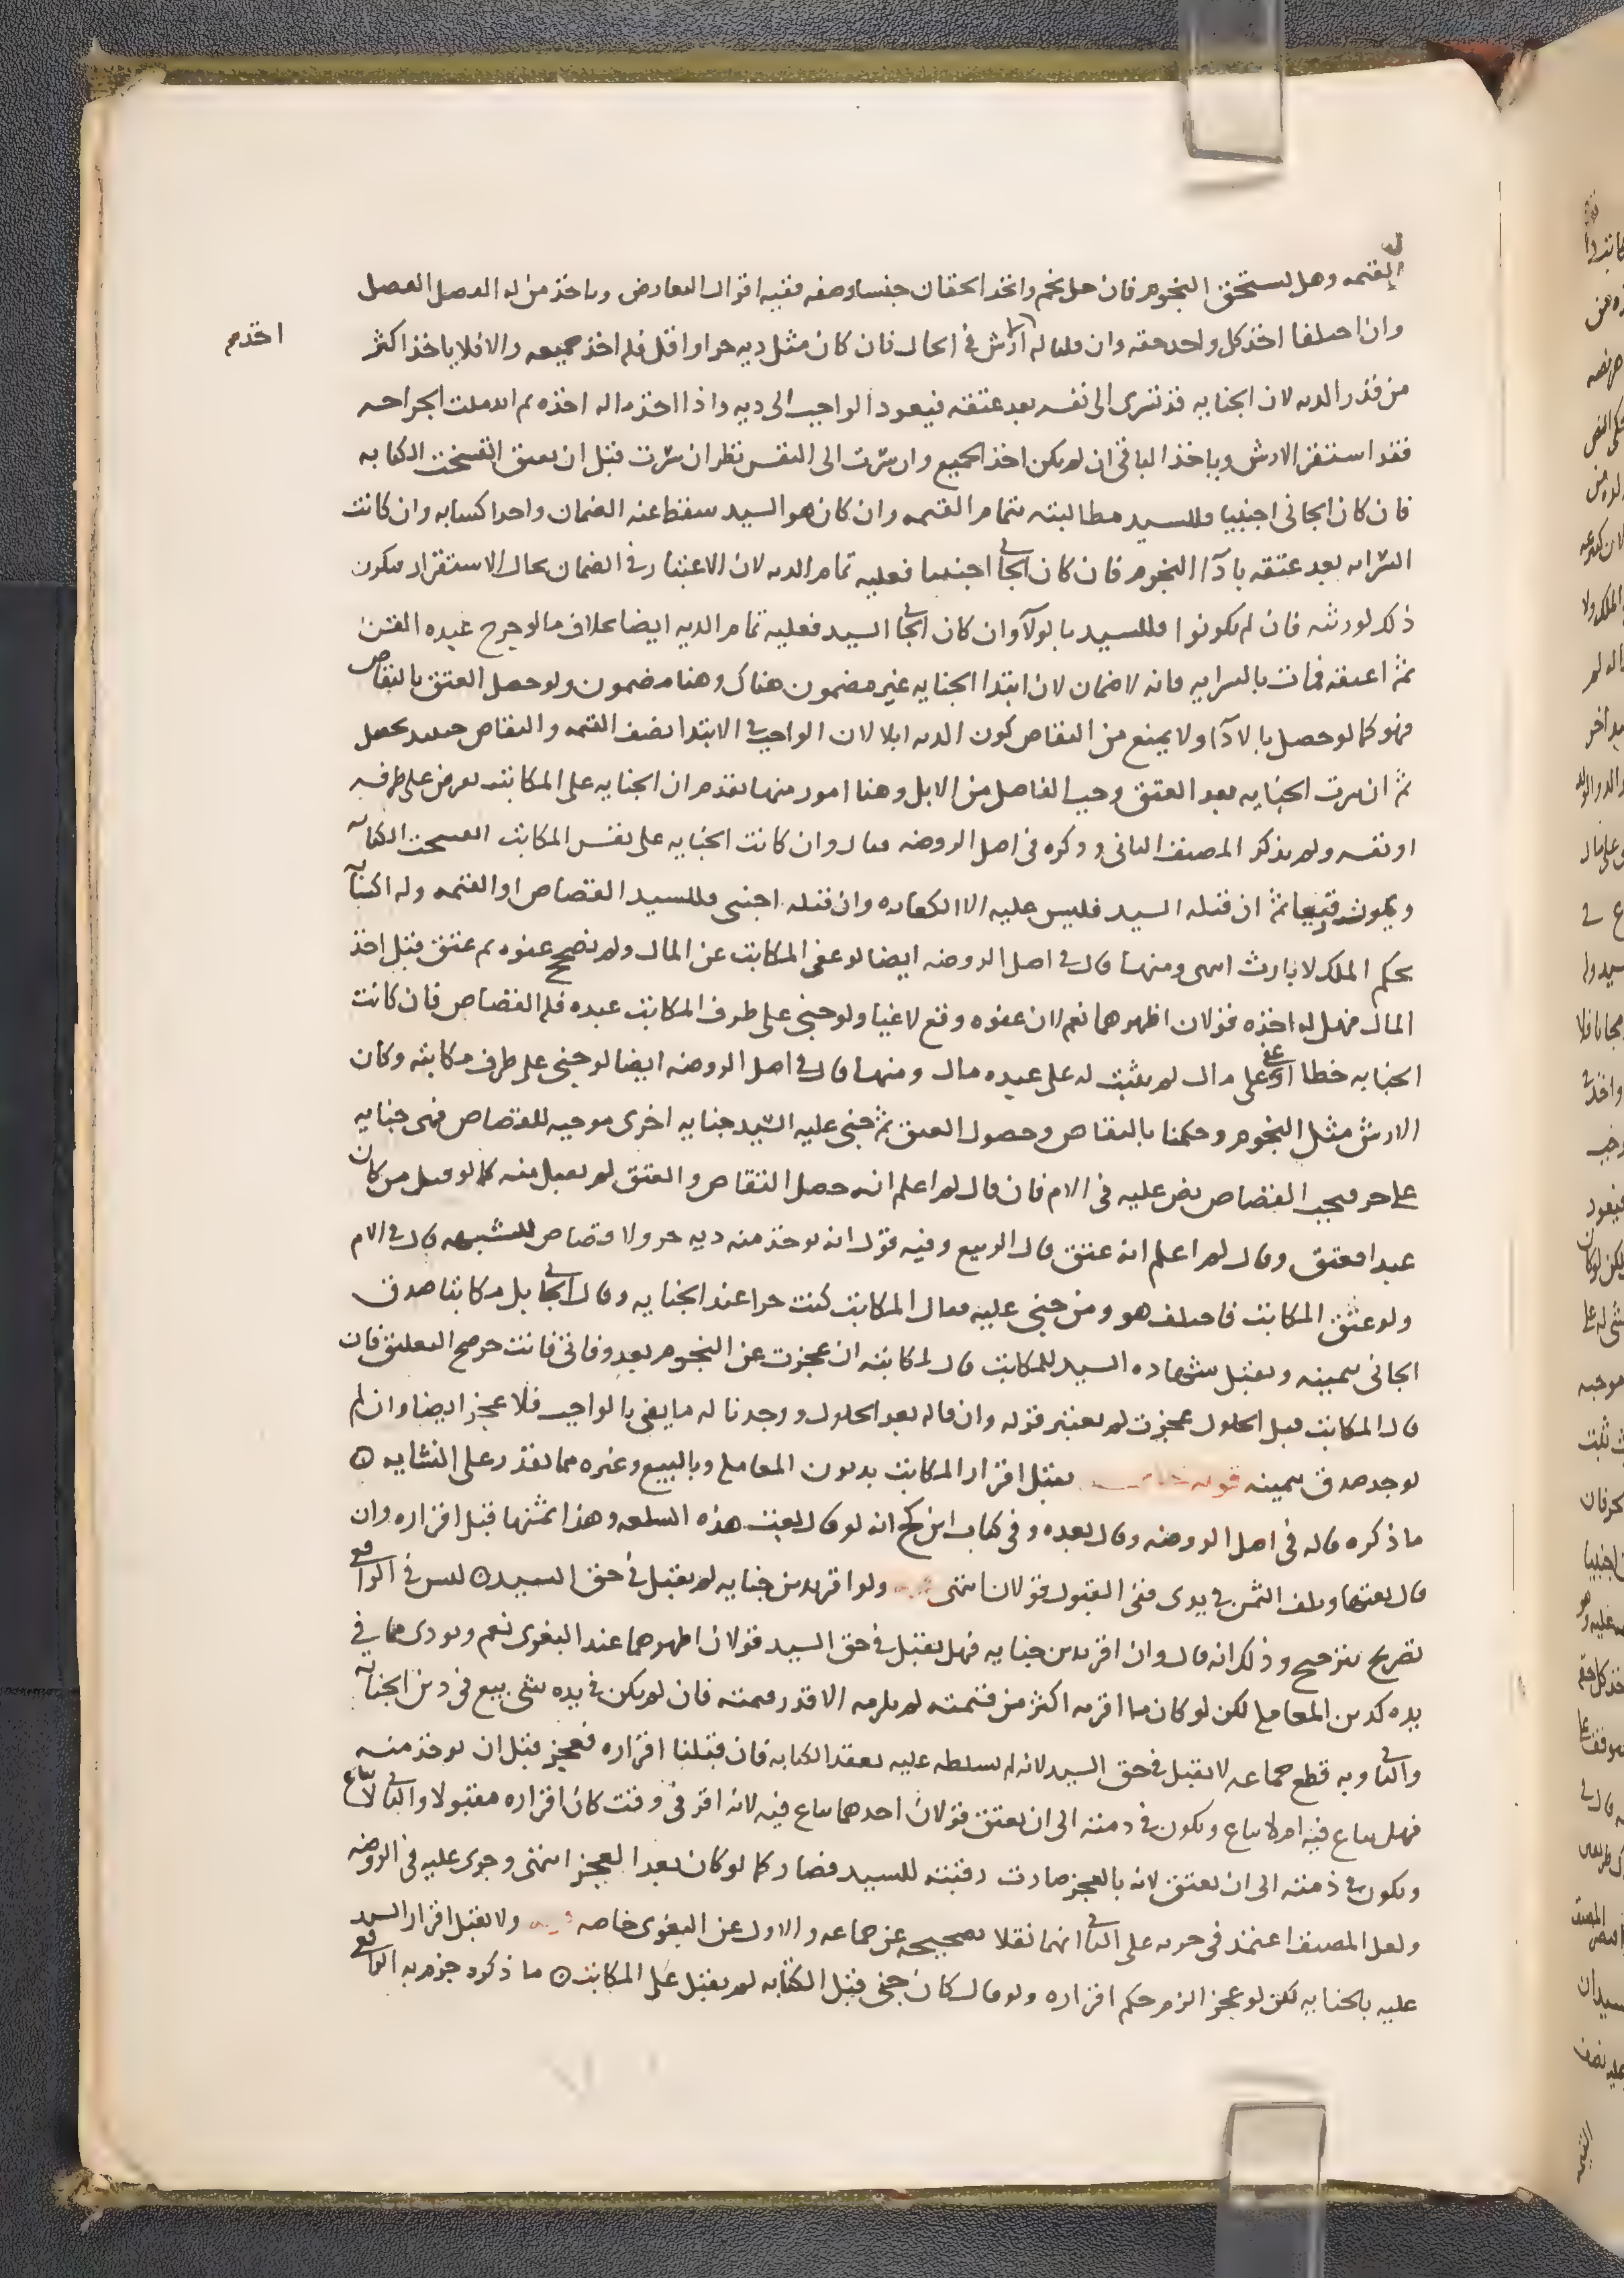 القيمه وهل يستحق النجوم فان حل نجم واتحد الحقان جنسا وصفه ففيه اقوال التعارض وياخذ من له الفضل الفضل
وان احتلفا اخذ كل واحد حقه وان قلنا له الارش في الحال فان كان مثل ديه حر او اقل فله اخذ جميعه والا فلا ياخذ اكثر
من قدر الديه لان الجنايه قد تسرى الى نفسه بعد عتقه فيعود الواجب الى ديه واذا اخذ ماله اخذه ثم اندملت الجراحه
فقد استقر الارش وياخذ الباقي ان لم يكن اخذ الجميع وان سرت الى النفس نظر ان سرت قبل ان يعتق انفسخت الكتابه
فان كان الجاني اجنبيا فللسيد مطالبته بتمام القيمه وان كان هو السيد سقط عنه الضمان واخذ اكسابه وان كانت
السرايه بعد عتقه باداء النجوم فان كان الجاني اجنبيا فعليه تمام الديه لان الاعتبار في الضمان بحال الاستقرار فيكون
ذلك لورثته فان لم يكونوا فللسيد بالولاء وان كان الجاني السيد فعليه تمام الديه ايضا بخلاف ما لو جرح عبده القن
ثم اعتقه فمات بالسرايه فانه لا ضمان لان ابتدا الجنايه غير مضمون هناك وهنا مضمون ولو حصل العتق بالتقاص
فهو كما لو حصل بالاداء ولا يمنع من التقاص كون الديه ابلا لان الواجب في الابتدا نصف القيمه والتقاص حينئذ يحصل
ثم ان سرت الجنايه بعد العتق وجب الفاضل من الابل وهنا امور منها تقدم ان الجنايه على المكاتب تعرض على طرفه
او نفسه ولم يذكر المصنف الثاني وذكره في اصل الروضه فقال وان كانت الجنايه على نفس المكاتب انفسخت الكتابه
ويموت رقيقا ثم ان قتله السيد فليس عليه الا الكفاره وان قتله اجنبي فللسيد القصاص او القيمه وله اكسابه
بحكم الملك لا بارث انتهى ومنها قال في اصل الروضه ايضا لو عفى المكاتب عن المال ولم نصحح عفوه ثم عتق قبل اخذ
المال فهل له اخذه قولان اظهرهما نعم لان عفوه وقع لاغيا ولو جنى على طرف المكاتب عبده فله القصاص فان كانت
الجنايه خطا او عفى على مال لم يثبت له على عبده مال ومنها قال في اصل الروضه ايضا لو جنى على طرف مكاتبه وكان
الارش مثل النجوم وحكمنا بالتقاص وحصول العتق ثم جنى عليه السيد جنايه اخرى موجبه للقصاص فهي جنايه
على حر فيجب القصاص نص عليه في الام فان قال لم اعلم انه حصل التقاص والعتق لم يقبل منه كما لو قتل من كان
عبدا فعتق وقال لم اعلم انه عتق قال الربيع وفيه قول انه يوخذ منه ديه حر ولا قصاص للشبهه قال في الام
ولو عتق المكاتب فاختلف هو ومن جنى عليه فقال المكاتب كنت حرا عند الجنايه وقال الجاني بل مكاتبا صدق
الجاني بيمينه وتقبل شهاده السيد للمكاتب قال لمكاتبه ان عجزت عن النجوم بعد وفاتي فانت حر صح التعليق فان
قال المكاتب قبل الحلول عجزت لم يعتبر قوله وان قاله بعد الحلول ووجدنا له ما يفي بالواجب فلا عجز ايضا وان لم
يوجد صدق بيمينه يقبل اقرار المكاتب بديون المعامله وبالبيع وغيره مما يقدر على انشايه ه
ما ذكره قاله في اصل الروضه وقال بعده وفي كتاب ابن كج انه لو قال بعت هذه السلعه وهذا ثمنها قبل اقراره وان
قال بعتها وتلف الثمن في يدى ففي القبول قولان انتهى ولو اقر بدين جنايه لم يقبل في حق السيد ه ليس في الرافعي
تصريح بترجيح وذلك انه قال وان اقر بدين جنايه فهل يقبل في حق السيد قولان اظهرهما عند البغوى نعم ويودى مما في
يده كدين المعامله لكن لو كان ما اقر به اكثر من قيمته لم يلزمه الا قدر قيمته فان لم يكن في يده شي بيع في دين الجنايه
والثاني وبه قطع جماعه لا يقبل في حق السيد لانه لم يسلطه عليه بعقد الكتابه فان قبلنا اقراره فعجز قبل ان يوخذ منه
فهل يباع فيه ام لا يباع ويكون في ذمته الى ان يعتق قولان احدهما يباع فيه لانه اقر في وقت كان اقراره مقبولا والثاني لا يباع
ويكون في ذمته الى ان يعتق لانه بالعجز صارت رقبته للسيد فصار كما لو كان بعد العجز انتهى وجرى عليه في الروضه
ولعل المصنف اعتمد في جزمه على الثاني انهما نقلا تصحيحه عن جماعه والاول عن البغوى خاصه ولا يقبل اقرار السيد
عليه بالجنايه لكن لو عجز الزم حكم اقراره ولو قال كان جنى قبل الكتابه لم يقبل على المكاتب ه ما ذكره جزم به الرافعي